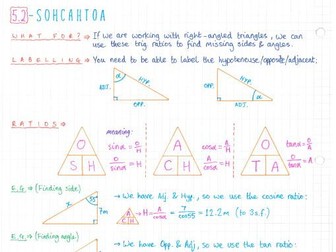 5.2 - SOHCAHTOA
WHAT FOR? → If we are working with right-angled triangles, we can
use these trig ratios to find missing sides & angles.
LABELLING → You need to be able to label the hypotenuse/opposite/adjacent:
α HYP.
ADJ.
OPP.
HYP.
OPP.
α
ADJ.
RATIOS →
O
S H
meaning:
sinα = O/H
O/sinα = H
A
C H
cosα = A/H
A/cosα = H
O
T A
tanα = O/A
O/tanα = A
E.G. → (Finding side)
x 55° 7m
→ We have Adj. & Hyp., so we use the cosine ratio:
A
C H
→ H = A/cosα = 7/cos55 = 12.2m (to 3s.f.)
E.G. → (Finding angle)
→ We have Opp. & Adj., so we use the tan ratio: